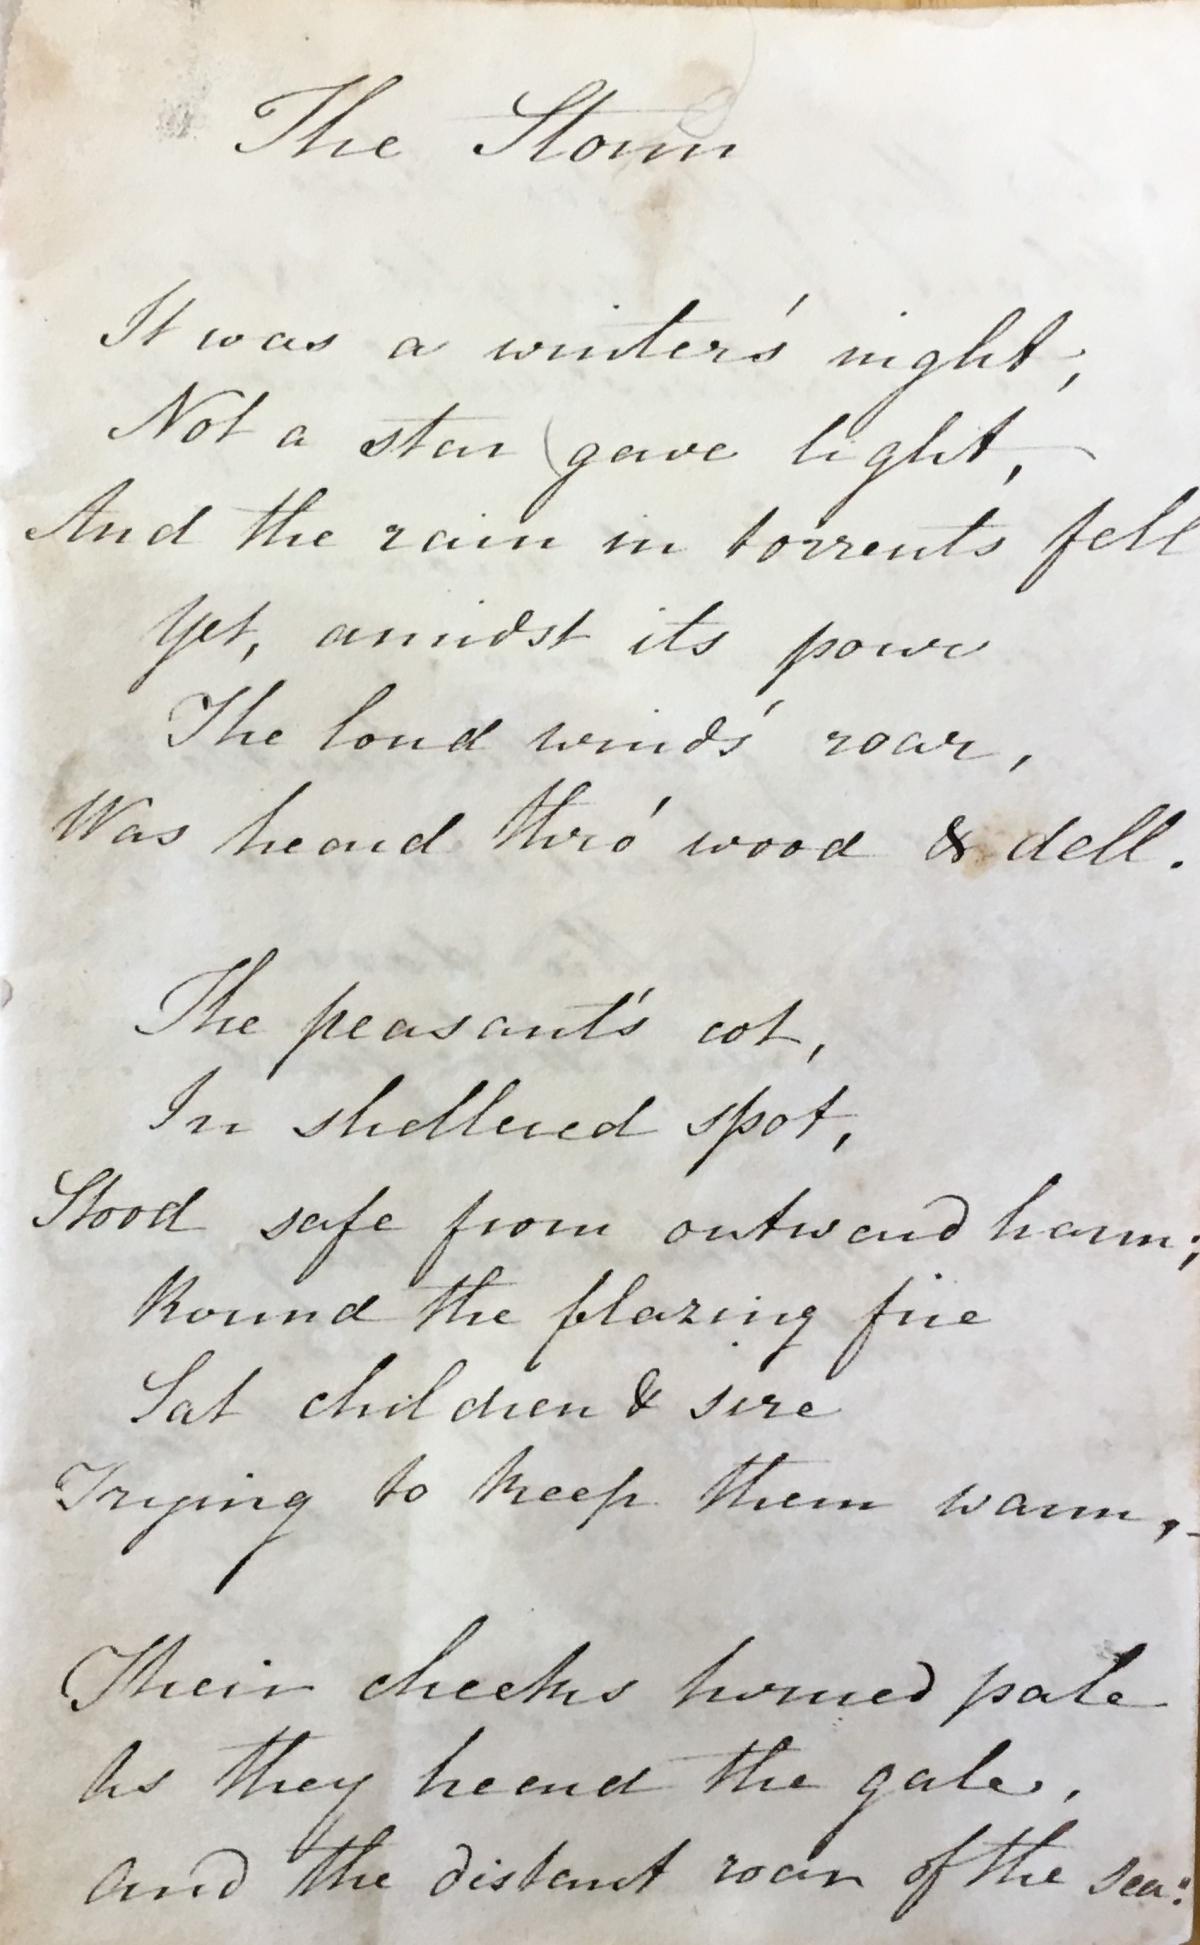 The Storm
It was a winter's night,
Not a star gave light,
And the rain in torrents fell
Yet, amidst its power
The loud wind's roar,
Was heard thro' wood & dell.
The peasant's cot,
In sheltered spot,
Stood safe from outward harm;
Round the blazing fire
Sat children & sire
Trying to keep them warm,-
Their cheeks turned pale
As they heard the gale,
and the distant roar of the sea: